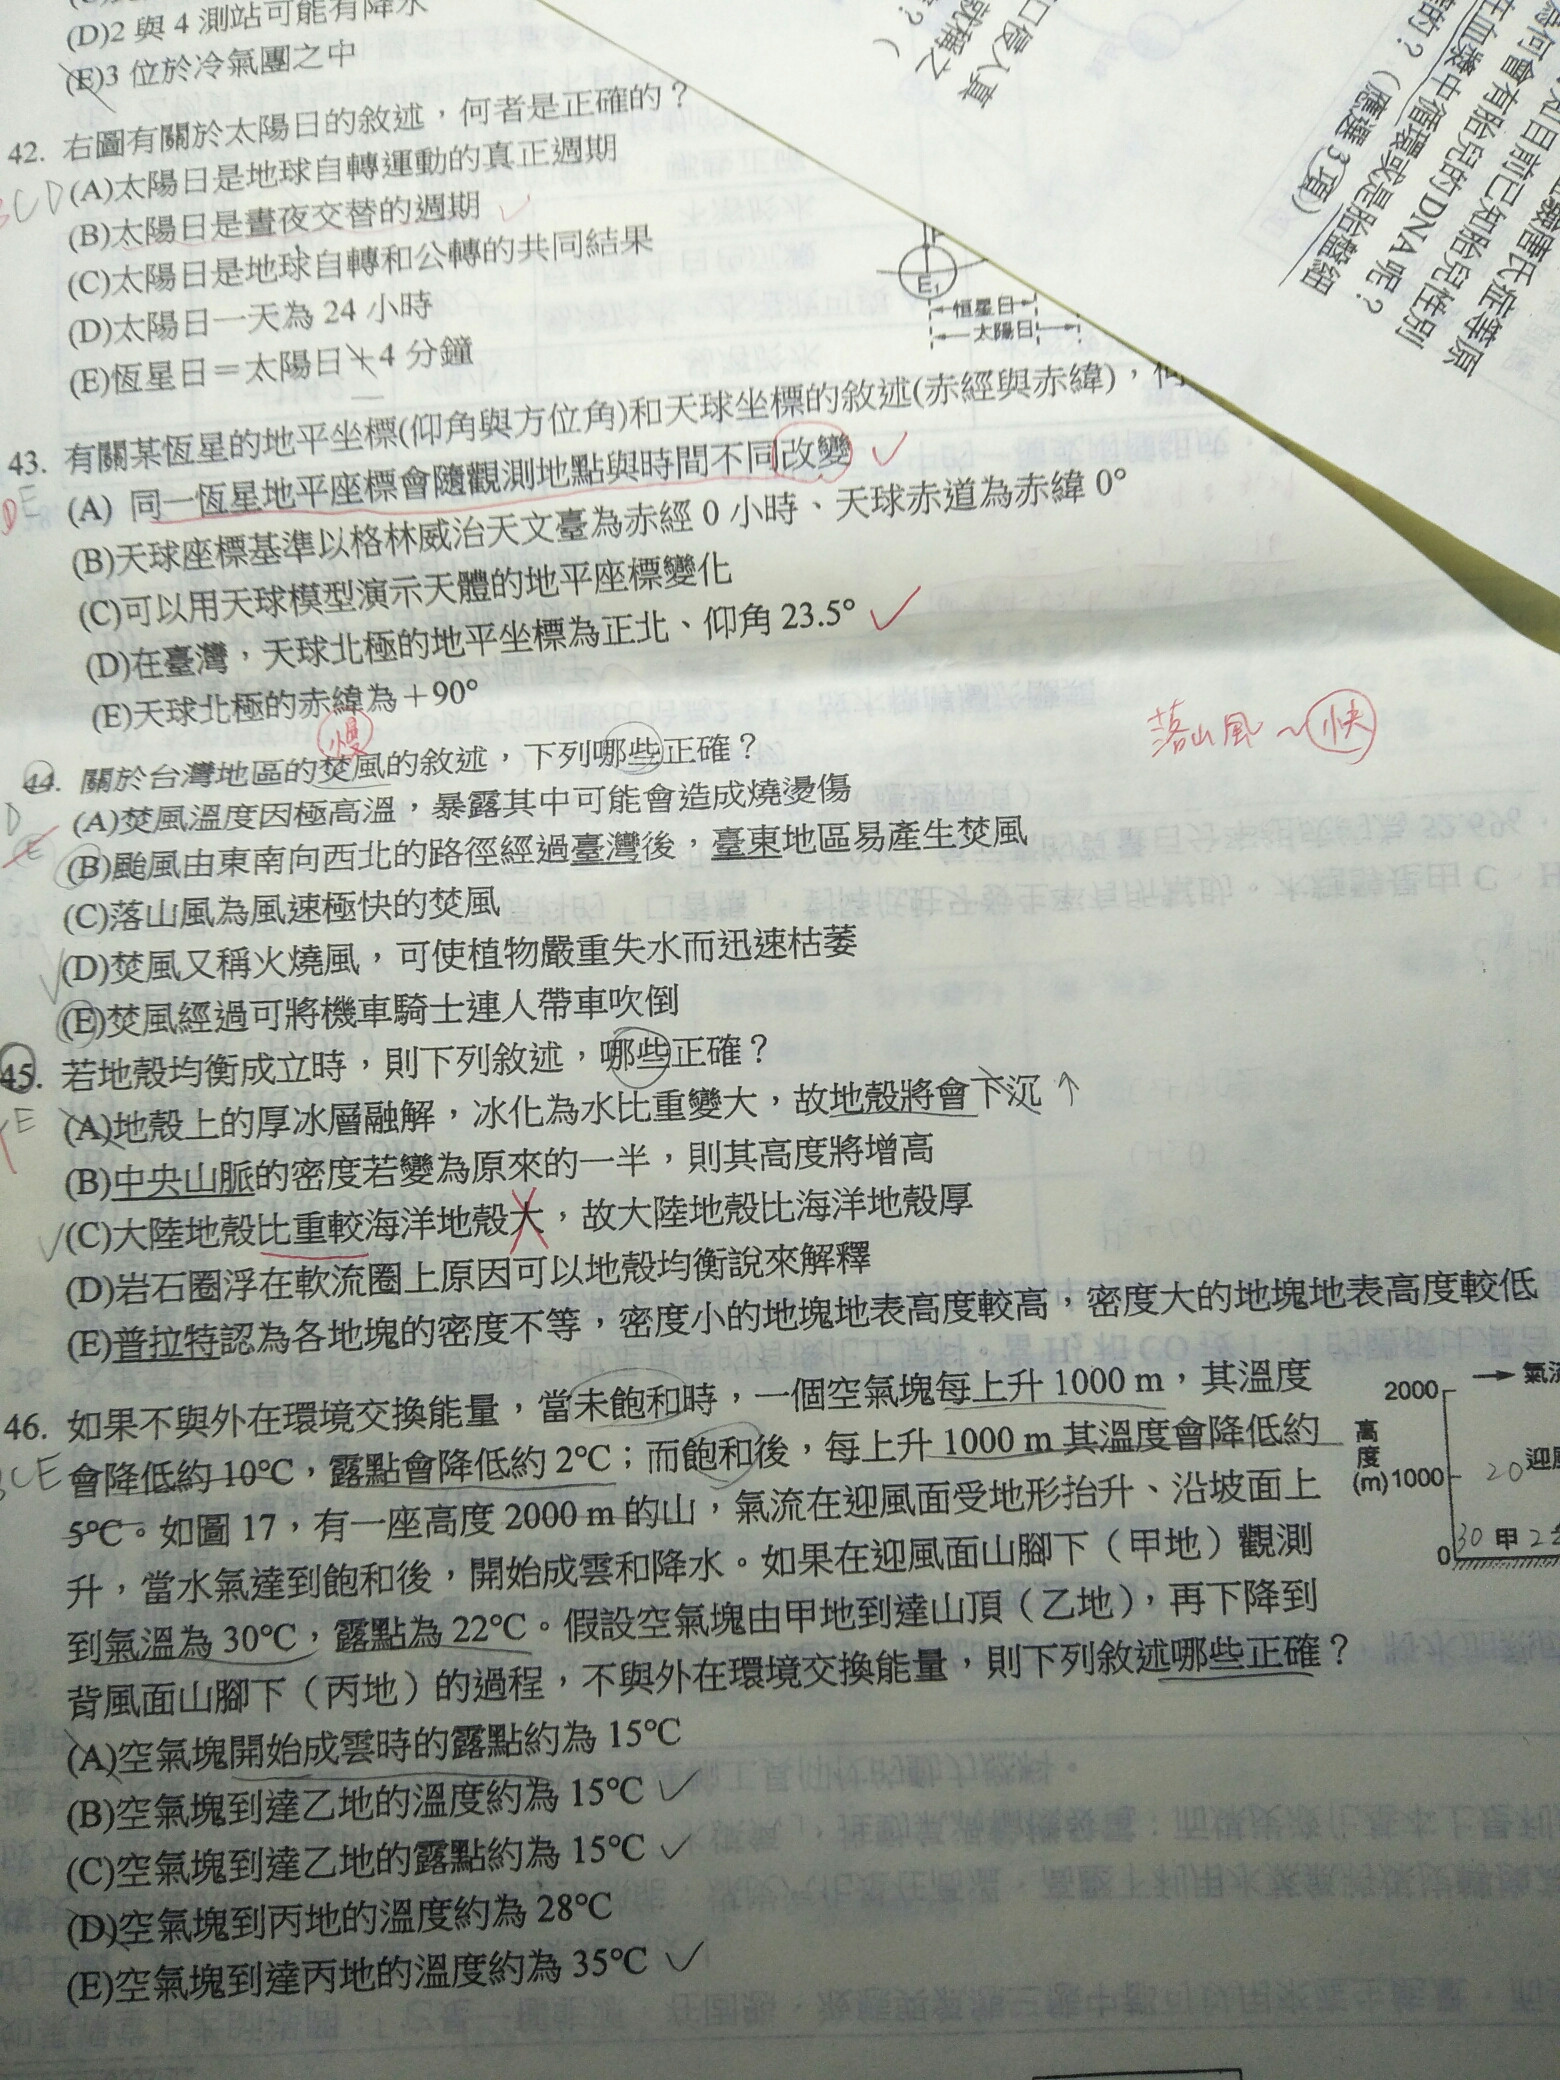 (D)2 與 4 測站可能有降水
(E)3 位於冷氣團之中
42. 右圖有關於太陽日的敘述，何者是正確的？
CD
(A)太陽日是地球自轉運動的真正週期
(B)太陽日是晝夜交替的週期
(C)太陽日是地球自轉和公轉的共同結果
(D)太陽日一天為 24 小時
(E)恆星日＝太陽日＋4 分鐘
E₁
恒星日
太陽日
43. 有關某恆星的地平坐標(仰角與方位角)和天球坐標的敘述(赤經與赤緯)，
DE
(A) 同一恆星地平座標會隨觀測地點與時間不同改變
(B)天球座標基準以格林威治天文臺為赤經 0 小時、天球赤道為赤緯 0°
(C)可以用天球模型演示天體的地平座標變化
(D)在臺灣，天球北極的地平坐標為正北、仰角 23.5°
(E)天球北極的赤緯為＋90°
慢
落山風～快
44. 關於台灣地區的焚風的敘述，下列哪些正確？
D
E
(A)焚風溫度因極高溫，暴露其中可能會造成燒燙傷
(B)颱風由東南向西北的路徑經過臺灣後，臺東地區易產生焚風
(C)落山風為風速極快的焚風
(D)焚風又稱火燒風，可使植物嚴重失水而迅速枯萎
(E)焚風經過可將機車騎士連人帶車吹倒
45. 若地殼均衡成立時，則下列敘述，哪些正確？
E
(A)地殼上的厚冰層融解，冰化為水比重變大，故地殼將會下沉 ↑
(B)中央山脈的密度若變為原來的一半，則其高度將增高
(C)大陸地殼比重較海洋地殼大，故大陸地殼比海洋地殼厚
(D)岩石圈浮在軟流圈上原因可以地殼均衡說來解釋
(E)普拉特認為各地塊的密度不等，密度小的地塊地表高度較高，密度大的地塊地表高度較低
46. 如果不與外在環境交換能量，當未飽和時，一個空氣塊每上升 1000 m，其溫度
CE
會降低約 10℃，露點會降低約 2℃；而飽和後，每上升 1000 m 其溫度會降低約
5℃。如圖 17，有一座高度 2000 m 的山，氣流在迎風面受地形抬升、沿坡面上
升，當水氣達到飽和後，開始成雲和降水。如果在迎風面山腳下（甲地）觀測
到氣溫為 30℃，露點為 22℃。假設空氣塊由甲地到達山頂（乙地），再下降到
背風面山腳下（丙地）的過程，不與外在環境交換能量，則下列敘述哪些正確？
(A)空氣塊開始成雲時的露點約為 15℃
(B)空氣塊到達乙地的溫度約為 15℃
(C)空氣塊到達乙地的露點約為 15℃
(D)空氣塊到丙地的溫度約為 28℃
(E)空氣塊到達丙地的溫度約為 35℃
2000
氣
高度(m)
1000
20
迎
0
30 甲
在血漿中循環或是胎盤細
會有胎兒的DNA呢？
如目前已知胎兒性別
唐氏症等原
（應選 3 項）
就稱之